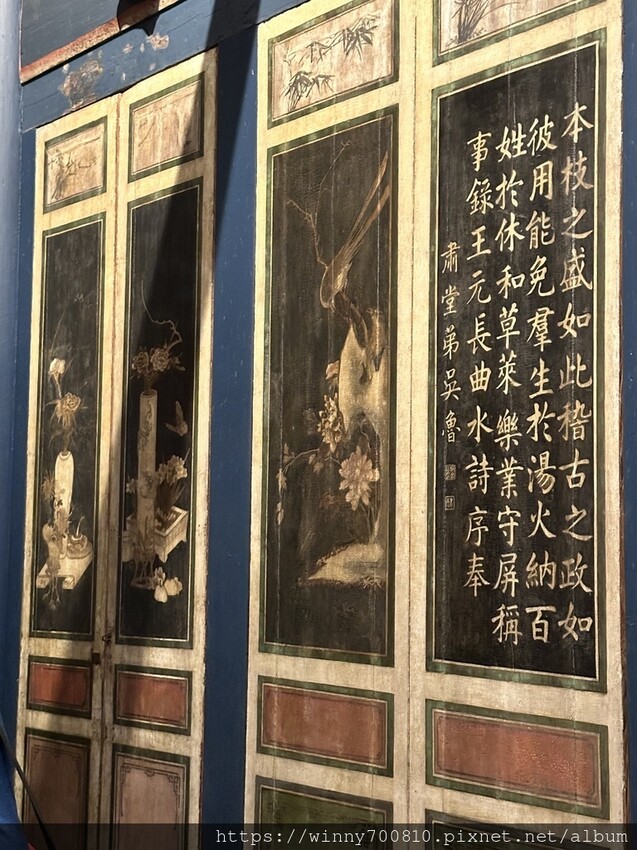 本枝之盛如此稽古之政如
彼用能免羣生於湯火納百
姓於休和草萊樂業守屏稱
事錄王元長曲水詩序奉
肅堂弟吳魯
https://winny700810.pixnet.net/album